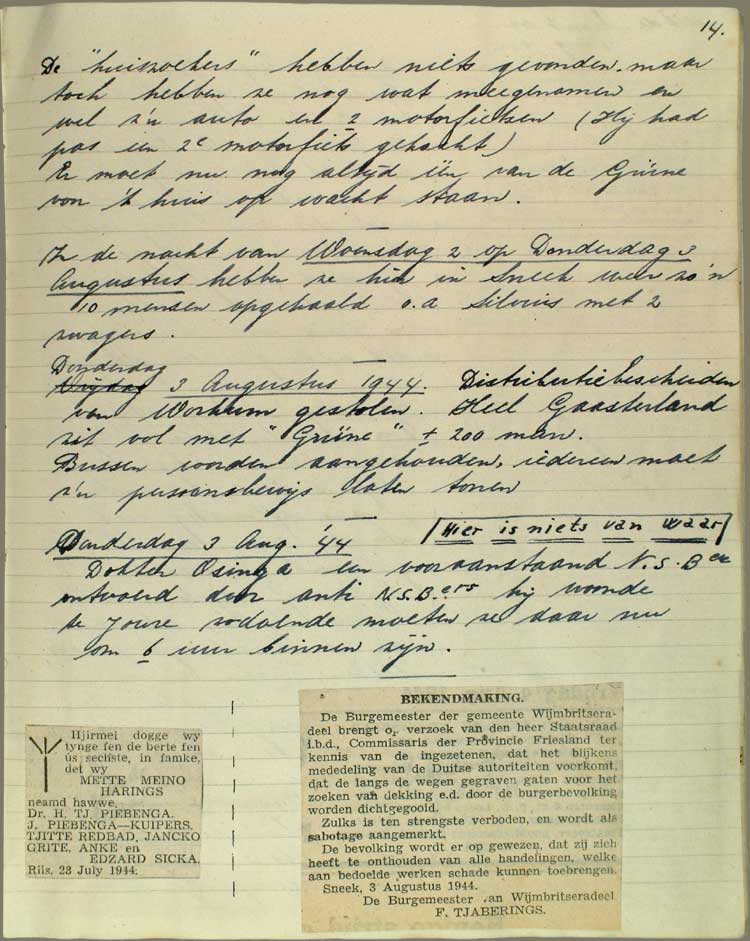 14.
De "huiszoekers" hebben niets gevonden. maar
toch hebben ze nog wat meegenomen en
wel z'n auto en 2 motorfietsen (Hij had
pas een 2e motorfiets gekocht)
Er moet nu nog altijd één van de Grüne
voor 't huis op wacht staan.
In de nacht van Woensdag 2 op Donderdag 3
Augustus hebben ze hier in Sneek weer zo'n
10 mensen opgehaald o.a Silvius met 2
zwagers.
Donderdag
Vrijdag 3 Augustus 1944. Distributiebescheiden
van Workum gestolen. Heel Gaasterland
zit vol met "Grüne" ± 200 man.
Bussen worden aangehouden, iedereen moet
z'n persoonsbewijs laten tonen
Donderdag 3 Aug. '44 Hier is niets van waar
Dokter Osinga een vooraanstaand N.S.Ber
ontvoerd door anti N.S.B.ers hij woonde
te Joure zodoende moeten ze daar nu
om 6 uur binnen zijn.
Hjirmei dogge wy
tynge fen de berte fen
ús sechste, in famke,
det wy
METTE MEINO
HARINGS
neamd hawwe.
Dr. H. TJ. PIEBENGA.
J. PIEBENGA—KUIPERS.
TJITTE REDBAD, JANCKO
GRITE, ANKE en
EDZARD SICKA.
Riis, 23 July 1944.
BEKENDMAKING.
De Burgemeester der gemeente Wijmbritsera-
deel brengt op verzoek van den heer Staatsraad
i.b.d., Commissaris der Provincie Friesland ter
kennis van de ingezetenen, dat het blijkens
mededeling van de Duitse autoriteiten voorkomt,
dat de langs de wegen gegraven gaten voor het
zoeken van dekking e.d. door de burgerbevolking
worden dichtgegooid.
Zulks is ten strengste verboden, en wordt als
sabotage aangemerkt.
De bevolking wordt er op gewezen, dat zij zich
heeft te onthouden van alle handelingen, welke
aan bedoelde werken schade kunnen toebrengen.
Sneek, 3 Augustus 1944.
De Burgemeester van Wijmbritseradeel
F. TJABERINGS.